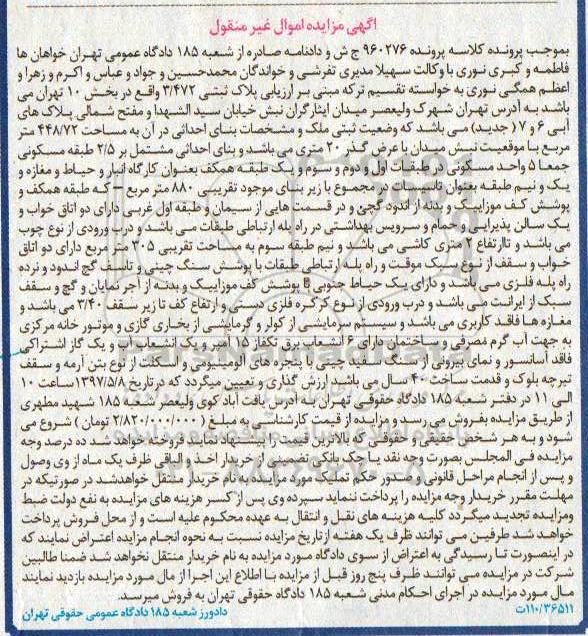 آگهی مزایده اموال غیر منقول
بموجب پرونده کلاسه پرونده ۹۶۰۲۷۶ ج ش و دادنامه صادره از شعبه ۱۸۵ دادگاه عمومی تهران خواهان ها
فاطمه و کبری نوری با وکالت سهیلا مدیری تفرشی و خواندگان محمدحسین و جواد و عباس و اکرم و زهرا و
اعظم همگی نوری به خواسته تقسیم ترکه مبنی بر ارزیابی پلاک ثبتی ۳/۴۷۲ واقع در بخش ۱۰ تهران می
باشد به آدرس تهران شهرک ولیعصر میدان ایثارگران نبش خیابان سید الشهدا و مفتح شمالی پلاک های
آبی ۶ و ۷ ( جدید) می باشد که وضعیت ثبتی ملک و مشخصات بنای احداثی در آن به مساحت ۴۴۸/۷۲ متر
مربع با موقعیت نبش میدان با عرض گذر ۲۰ متری می باشد و بنای احداثی مشتمل بر ۲/۵ طبقه مسکونی
جمعا ۵ واحد مسکونی در طبقات اول و دوم و سوم و یک طبقه همکف بعنوان کارگاه انبار و حیاط و مغازه و
یک و نیم طبقه بعنوان تاسیسات در مجموع با زیر بنای موجود تقریبی ۸۸۰ متر مربع – که طبقه همکف و
پوشش کف موزاییک و بدنه از اندود گچی و در قسمت هایی از سیمان و طبقه اول غربی دارای دو اتاق خواب و
یک سالن پذیرایی و حمام و سرویس بهداشتی در راه پله ارتباطی طبقات می باشد و درب ورودی از نوع چوب
می باشد و تاارتفاع ۲ متری کاشی می باشد و نیم طبقه سوم به مساحت تقریبی ۳۰۵ متر مربع دارای دو اتاق
خواب و سقف از نوع سبک موقت و راه پله ارتباطی طبقات با پوشش سنگ چینی و تاسقف گچ اندود و نرده
راه پله فلزی می باشد و دارای یک حیاط جنوبی با پوشش کف موزاییک و بدنه از آجر نمایان و گچ و سقف
سبک از ایرانت می باشد و درب ورودی از نوع کرکره فلزی دستی و ارتفاع کف تا زیر سقف ۳/۴۰ می باشد و
مغازه ها فاقد کاربری می باشد و سیستم سرمایشی از کولر و گرمایشی از بخاری گازی و موتور خانه مرکزی
به جهت آب گرم مصرفی و ساختمان دارای ۶ انشعاب برق تکفاز ۱۵ آمپر و یک انشعاب آب و یک گاز اشتراکی
فاقد آسانسور و نمای بیرونی از سنگ سفید چینی با پنجره های آلومینیومی و اسکلت از نوع بتن آرمه و سقف
تیرچه بلوک و قدمت ساخت ۴۰ سال می باشد ارزش گذاری و تعیین میگردد که در تاریخ ۱۳۹۷/۵/۸ ساعت ۱۰
الی ۱۱ در دفتر شعبه ۱۸۵ دادگاه حقوقی تهران به آدرس یافت آباد کوی ولیعصر شعبه ۱۸۵ شهید مطهری
از طریق مزایده بفروش می رسد و مزایده از قیمت کارشناسی به مبلغ ( ۲/۸۲۰/۰۰۰/۰۰۰ تومان ) شروع می
شود و به هر شخص حقیقی و حقوقی که بالاترین قیمت را پیشنهاد نماید فروخته خواهد شد ده درصد وجه
مزایده فی المجلس بصورت وجه نقد یا چک بانکی تضمینی از خریدار اخذ و الباقی ظرف یک ماه از وی وصول
و پس از انجام مراحل قانونی و صدور حکم تملیک مورد مزایده به نام خریدار منتقل خواهدشد در صورتیکه در
مهلت مقرر خریدار وجه مزایده را پرداخت ننماید سپرده وی پس از کسر هزینه های مزایده به نفع دولت ضبط
ومزایده تجدید میگردد کلیه هزینه های نقل و انتقال به عهده محکوم علیه است و از محل فروش پرداخت
خواهد شد طرفین می توانند ظرف یک هفته از تاریخ مزایده نسبت به نحوه انجام مزایده اعتراض نمایند که
در اینصورت تا رسیدگی به اعتراض از سوی دادگاه مورد مزایده به نام خریدار منتقل نخواهد شد ضمنا طالبین
شرکت در مزایده می توانند ظرف پنج روز قبل از مزایده با اطلاع این اجرا از مال مورد مزایده بازدید نمایند
مال مورد مزایده در اجرای احکام مدنی شعبه ۱۸۵ دادگاه حقوقی تهران به فروش میرسد.
۱۱۰/۳۶۵۱۱ت
دادورز شعبه ۱۸۵ دادگاه عمومی حقوقی تهران